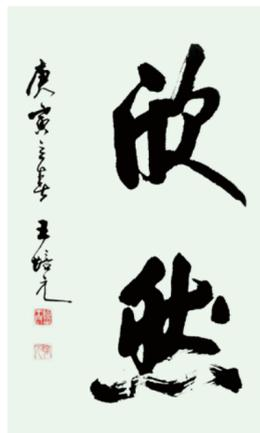 欣然
庚寅之春 王培元